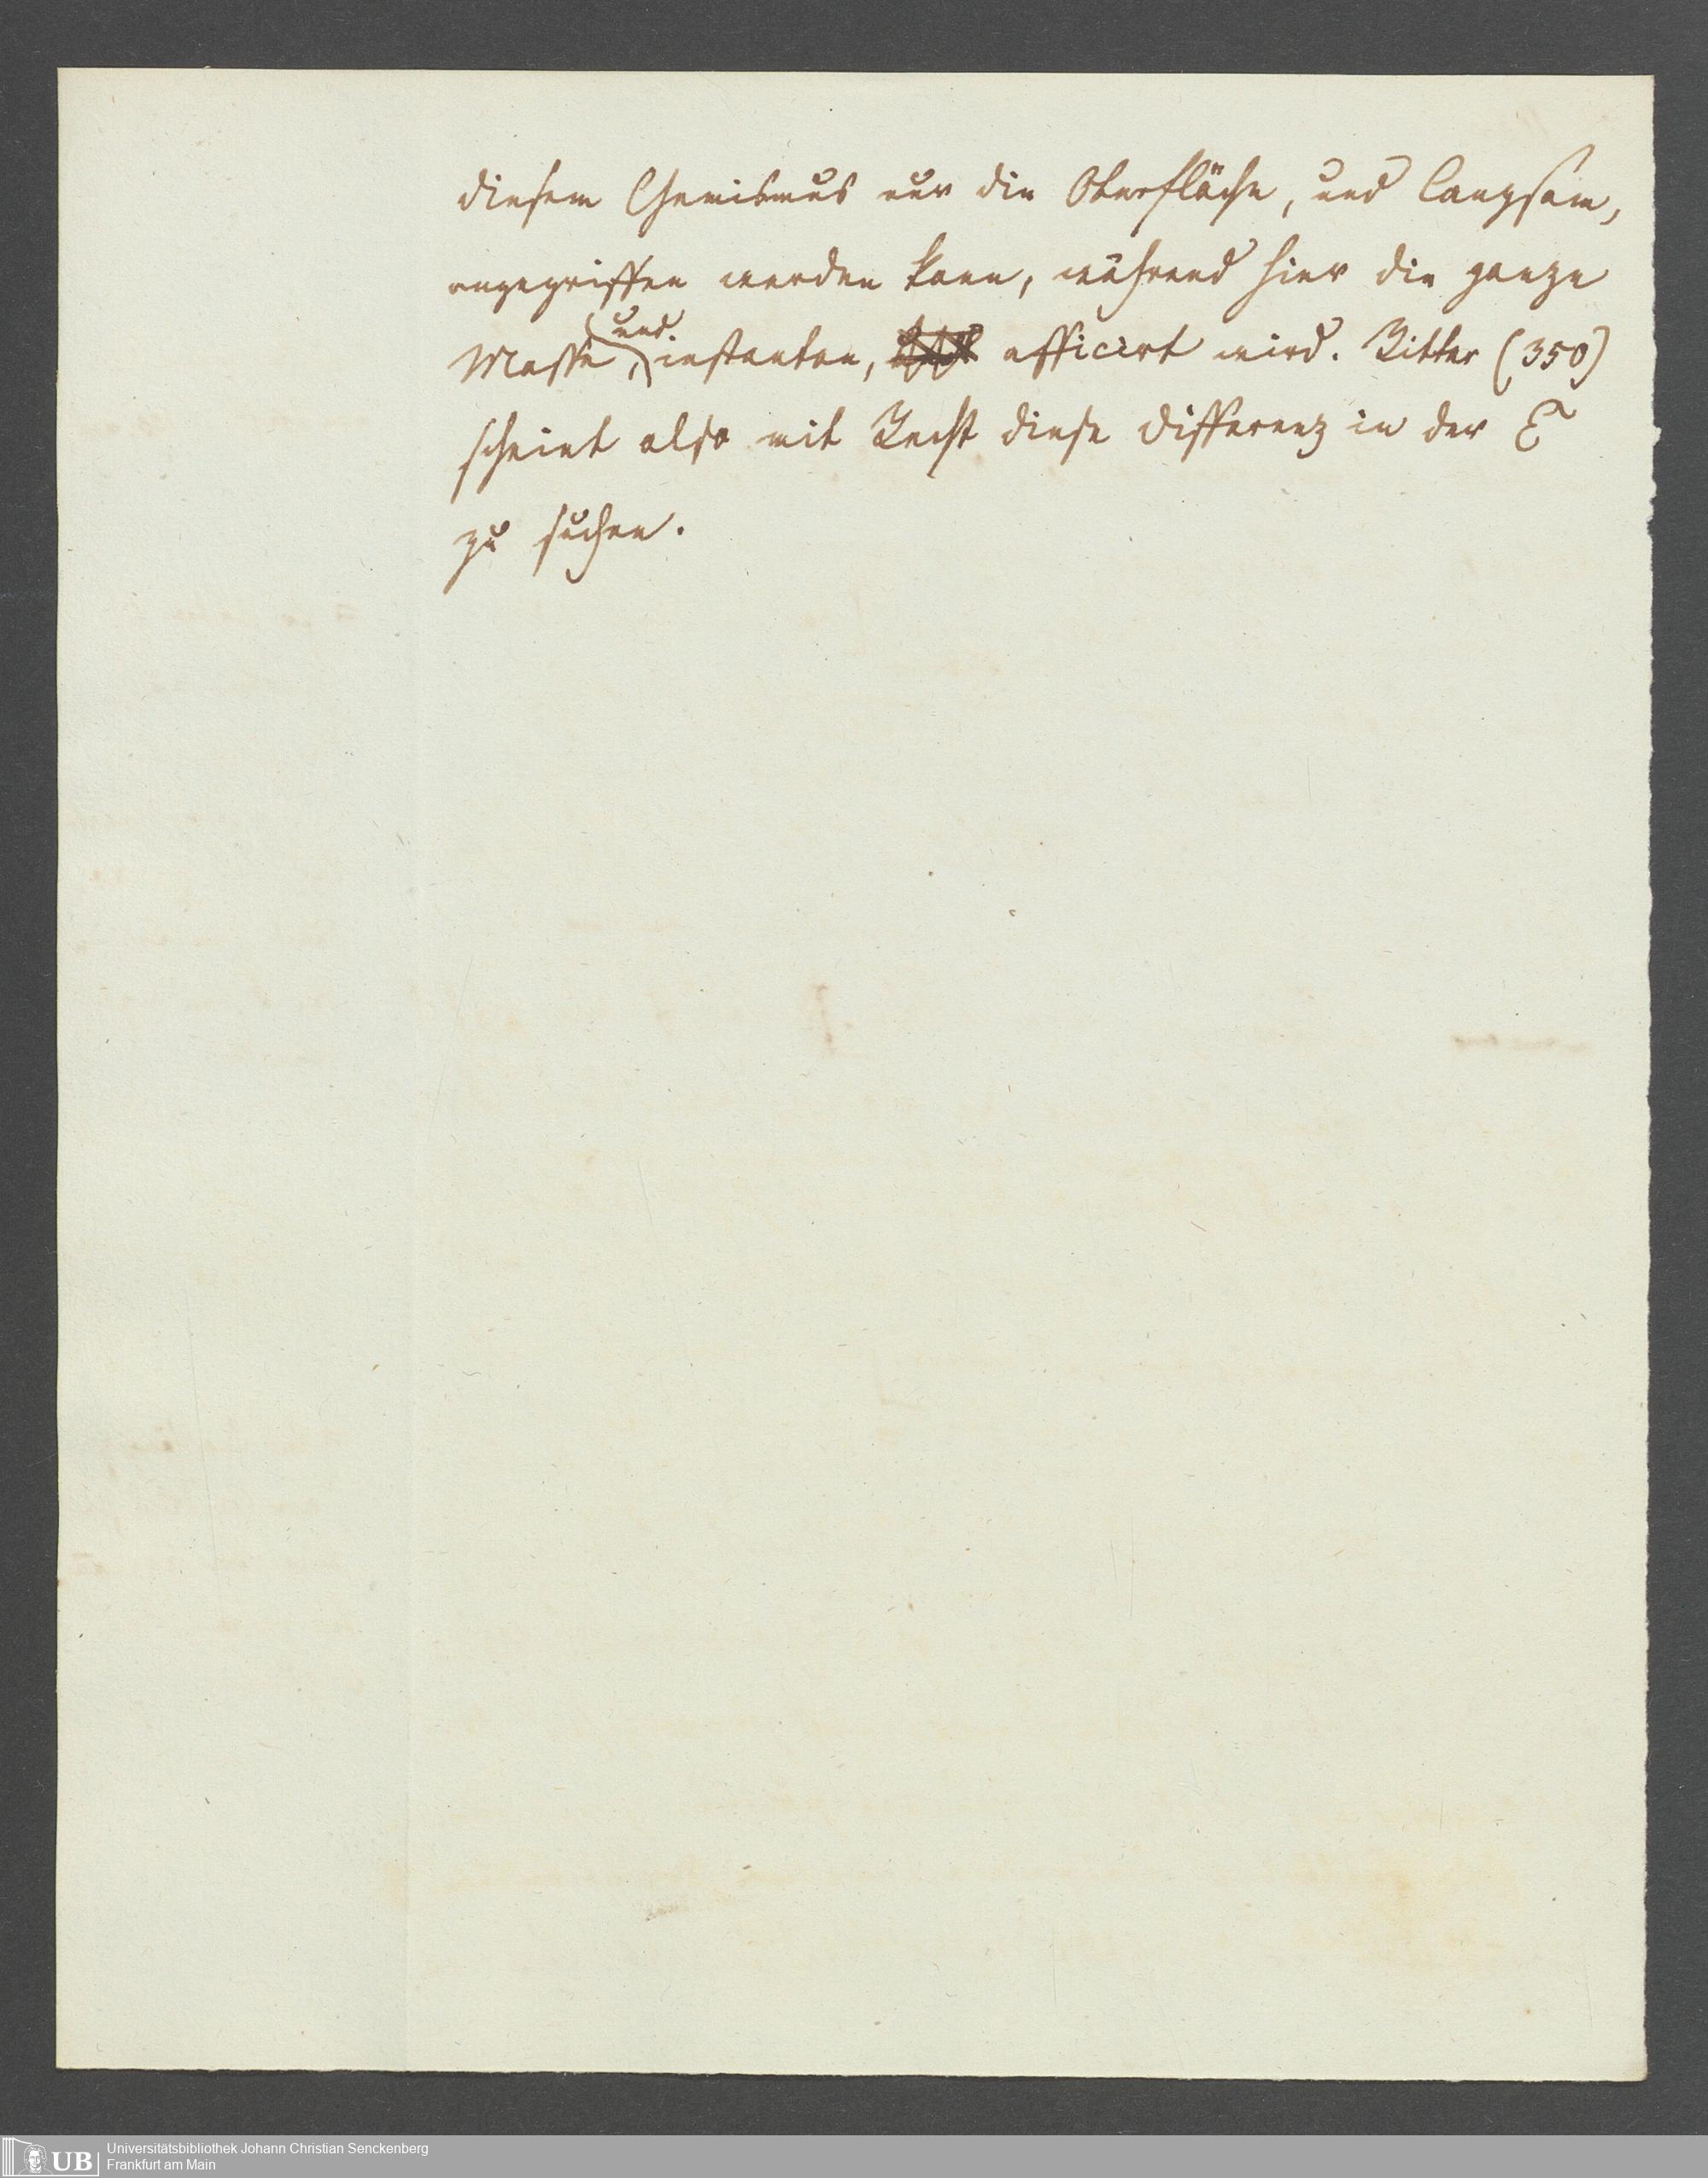 diesem Chemismus nur die Oberfläche, und langsam,
angegriffen werden kann, während hier die ganze
Masse, und instantan, afficirt wird. Ritter (350)
scheint also mit Recht diese Differenz in der E
zu suchen.
UB Universitätsbibliothek Johann Christian Senckenberg
Frankfurt am Main